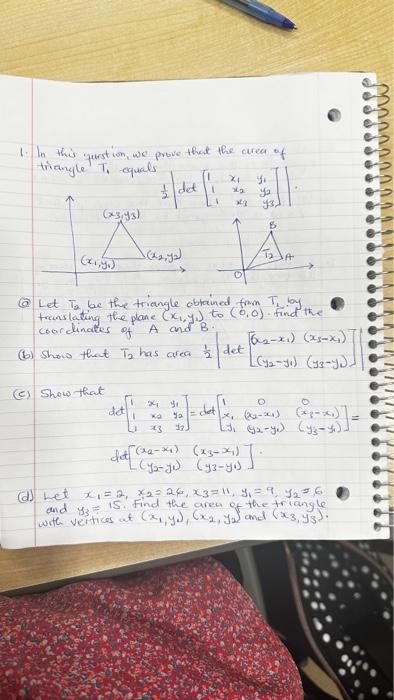 1. In this question, we prove that the area of
triangle T₁ equals
1/2 | det [1 x₁ y₁
1 x₂ y₂
1 x₃ y₃] |.
(x₃,y₃)
(x₁,y₁) (x₂,y₂)
B
T₂ A
O
(a) Let T₂ be the triangle obtained from T₁ by
translating the plane (x₁,y₁) to (0,0). find the
coordinates of A and B.
(b) Show that T₂ has area 1/2 | det [(x₂-x₁) (x₃-x₁)
(y₂-y₁) (y₃-y₁)] |
(c) Show that
det [1 x₁ y₁
1 x₂ y₂
1 x₃ y₃] = det [1 0 0
x₁ (x₂-x₁) (x₃-x₁)
y₁ (y₂-y₁) (y₃-y₁)] =
det [(x₂-x₁) (x₃-x₁)
(y₂-y₁) (y₃-y₁)].
(d) Let x₁ = 2, x₂ = 26, x₃ = 11, y₁ = 9, y₂ = 6
and y₃ = 15. Find the area of the triangle
with vertices at (x₁,y₁), (x₂,y₂) and (x₃,y₃).